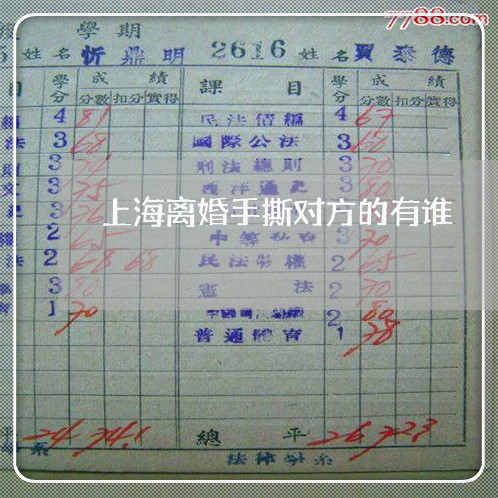 7788.com
學期
姓名 忻鼎明 2616 姓名 賈泰德
目 學分 成績 課目 學分 成績
分數 扣分 實得 分數 扣分 實得
4 81 民法債編 4 67
法 3 68 國際公法 3 60
3 刑法總則 3 70
文 3 75 西洋通史 3 80
3 76 3
上海离婚手撕对方的有谁
權 2 65 3 70
法 2 68 68 民法物權 2 65
3 80 憲法 2 70
1 70 2 80
普通體育 1 78
平 24 74.1 總平 26 72.3
系 法律學系